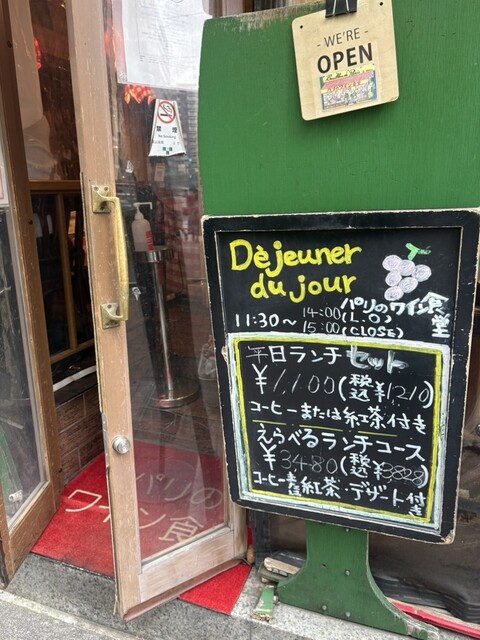 - WE'RE -
OPEN
禁煙
No Smoking
Dèjeuner
du jour
パリのワイン食堂
11:30〜 14:00 (L.O)
15:00 (CLOSE)
平日ランチセット
¥1,100 (税込¥1210)
コーヒーまたは紅茶付き
えらべるランチコース
¥3480 (税込¥3828)
コーヒーまたは紅茶・デザート付き
パリの
ワイン食